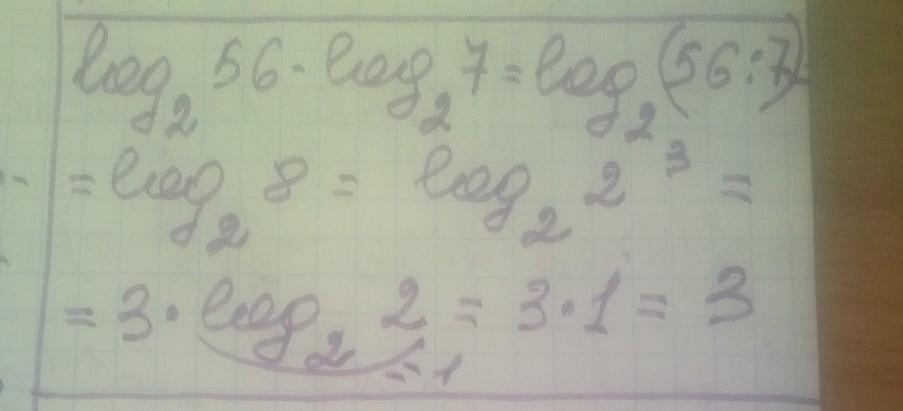 log₂ 56 - log₂ 7 = log₂ (56:7)
= log₂ 8 = log₂ 2³ =
= 3 · log₂ 2 = 3 · 1 = 3
= 1